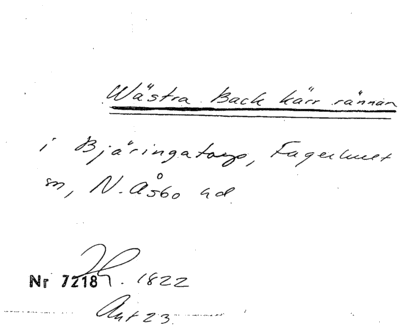 Wästra Back kärr rännan
i Bjäringatorp, Fagerhult
sn, N. Åsbo hd.
Nr 7218 . 1822
Akt 23.